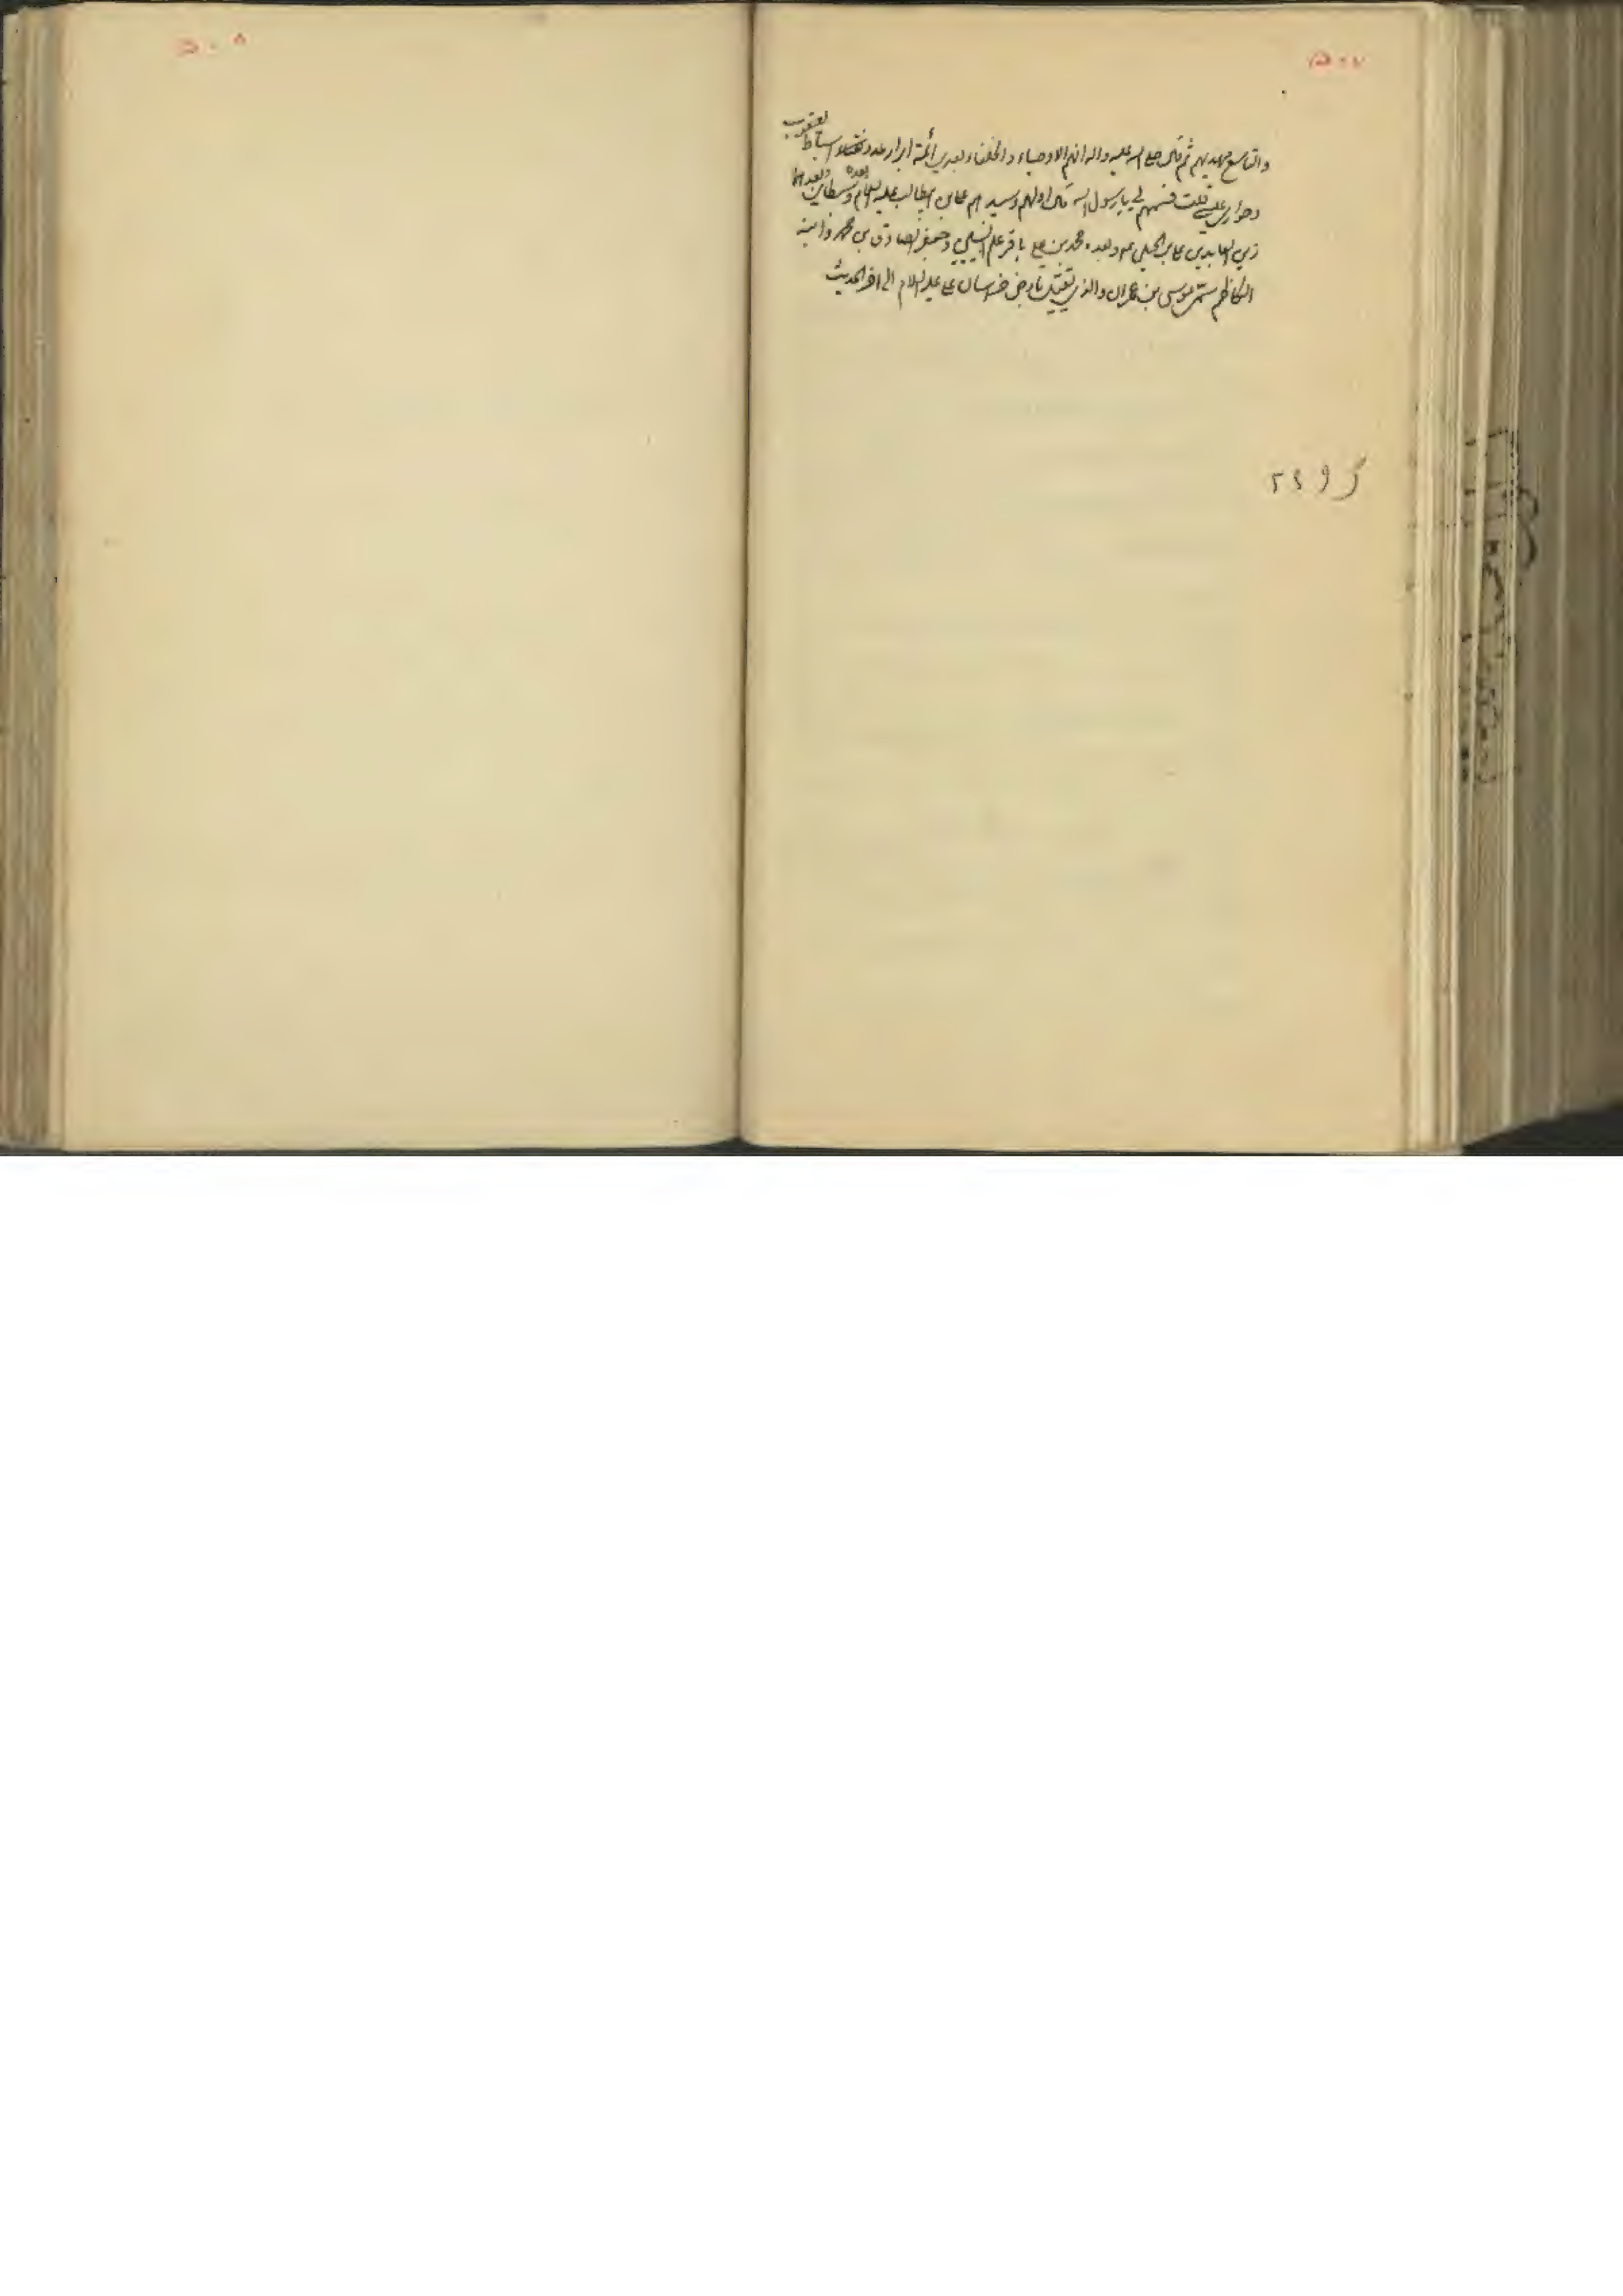 ٥٠٧
والتاسع مهديهم ثم قال صلى الله عليه واله انهم الاوصياء والخلفاء بعدي أئمة ابرار عدد نقباء اسباط يعقوب
وحواري عيسى قلت فسمهم لي يا رسول الله قال اولهم وسيدهم علي بن ابيطالب عليه السلام وسبطاي بعده وبعدهما
زين العابدين علي بن الحسين وبعده محمد بن علي باقر علم النبيين وجعفر الصادق بن محمد وابنه
الكاظم سمي موسى بن عمران والذي يقتل بارض خراسان علي عليه السلام الى اخر الحديث
٥٠٨